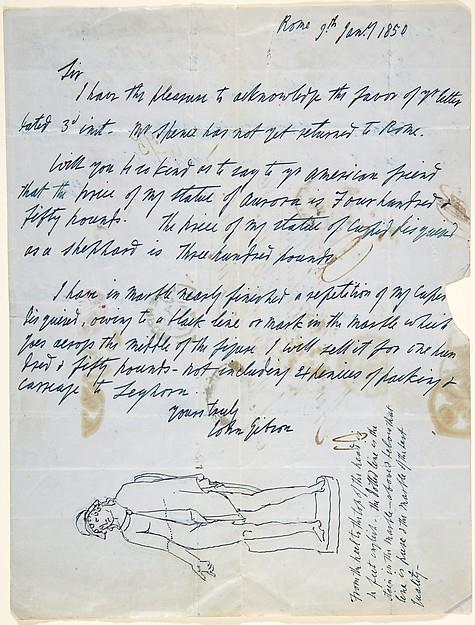 Rome 9th Jany 1850
Sir
I have the pleasure to acknowledge the favor of yr letter
dated 3d inst. Mr Spence has not yet returned to Rome.
Will you be so kind as to say to yr american friend
that the price of my statue of aurora is Four hundred &
fifty pounds. The price of my statue of Cupid disguised
as a shephard is Three hundred pounds
I have in marble nearly finished a repetition of my Cupid
disguised, owing to a black line or mark in the marble which
goes across the middle of the figure I will sell it for one hun
dred & fifty pounds - not including expenses of packing &
carriage to Leghorn.
yours truly
John Gibson
From the heel to the top of the head is
4 feet english. The dotted line is the
stain in the marble - above & below that
line is pure & the marble of the best
quality -